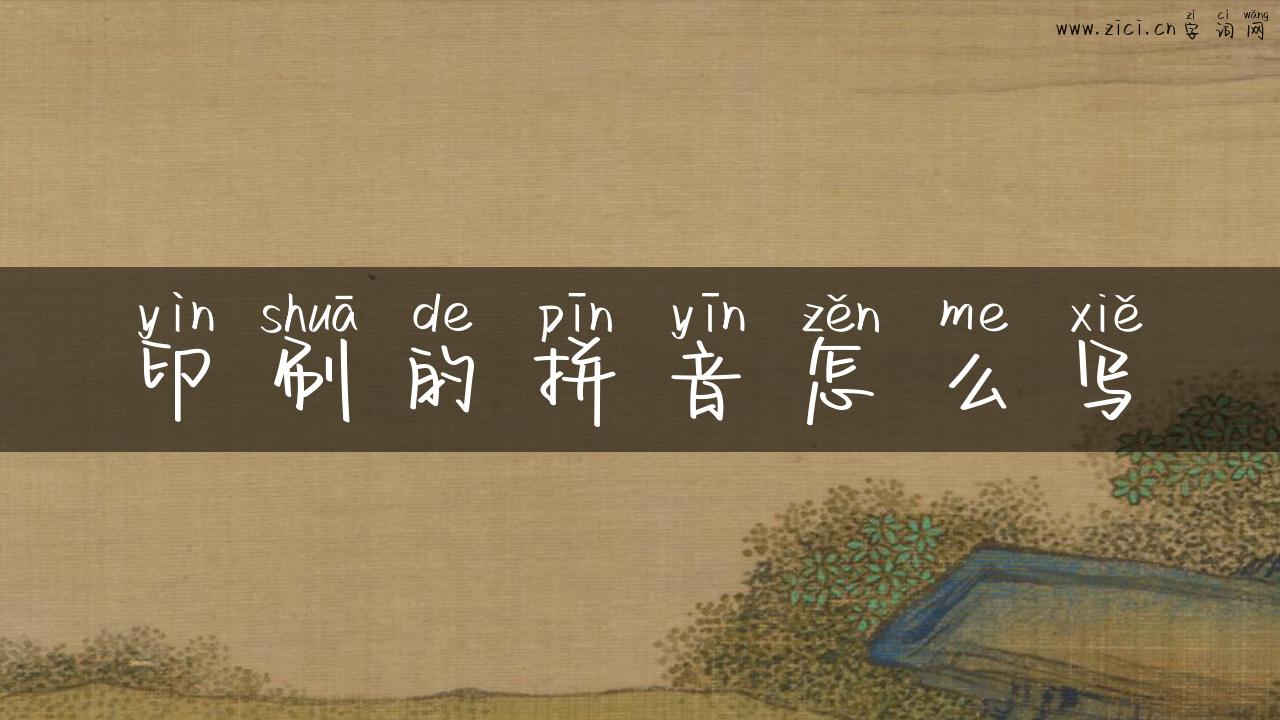 zì cí wǎng
www.zici.cn 字词网
yìn shuā de pīn yīn zěn me xiě
印刷的拼音怎么写